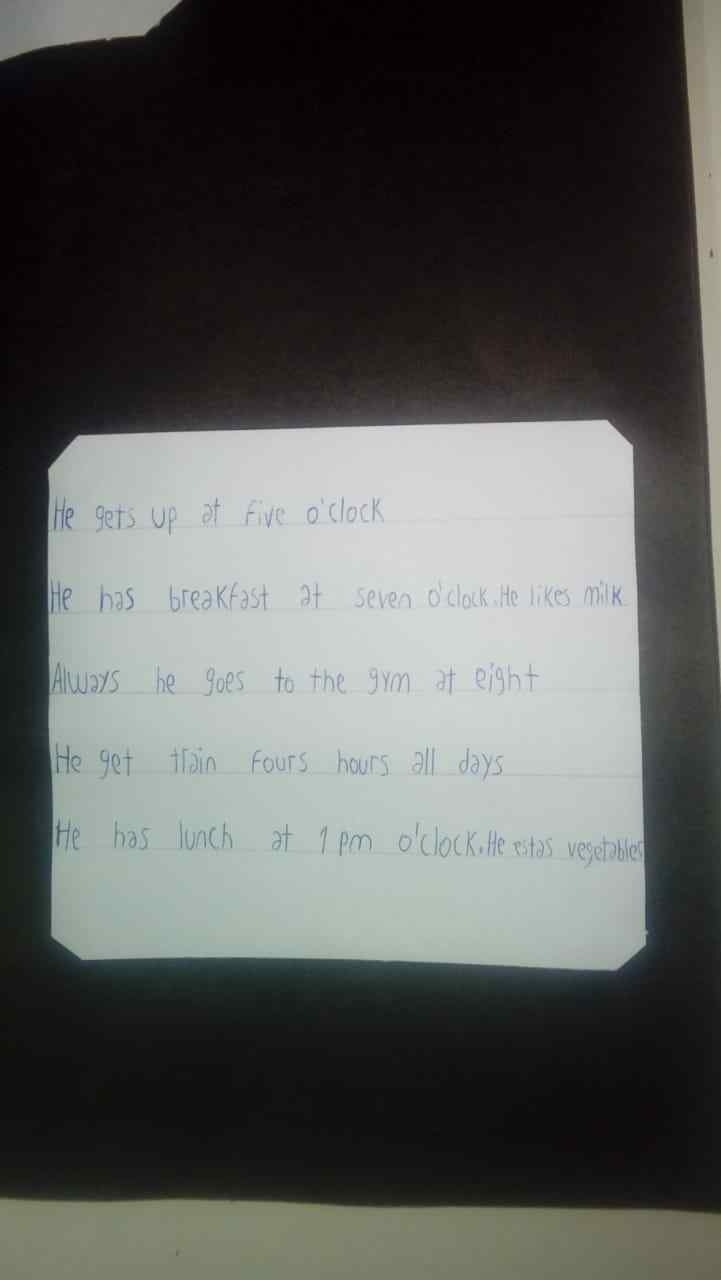 He gets up at five o'clock
He has breakfast at seven o'clock. He likes milk
Always he goes to the gym at eight
He get train fours hours all days
He has lunch at 1 pm o'clock. He estas vegetables